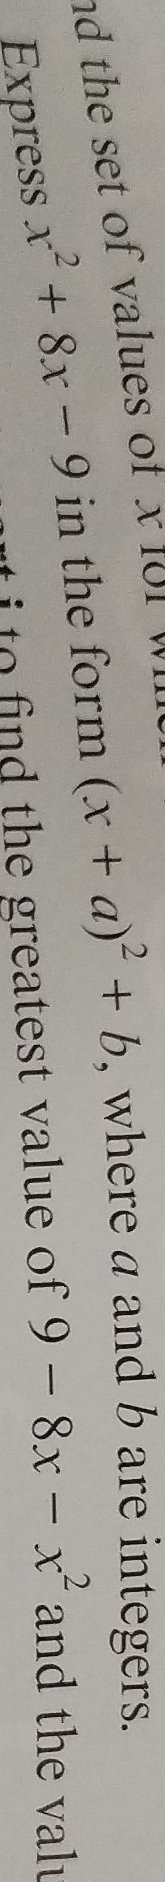 the set of values of x for
Express x² + 8x − 9 in the form (x + a)² + b, where a and b are integers.
i to find the greatest value of 9 − 8x − x² and the